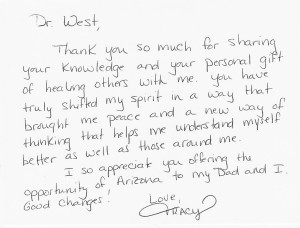 Dr. West,
Thank you so much for sharing
your knowledge and your personal gift
of healing others with me. you have
truly shifted my spirit in a way that
brought me peace and a new way of
thinking that helps me understand myself
better as well as those around me.
I so appreciate you offering the
opportunity of Arizona to my Dad and I.
Good changes!
Love,
Tracy